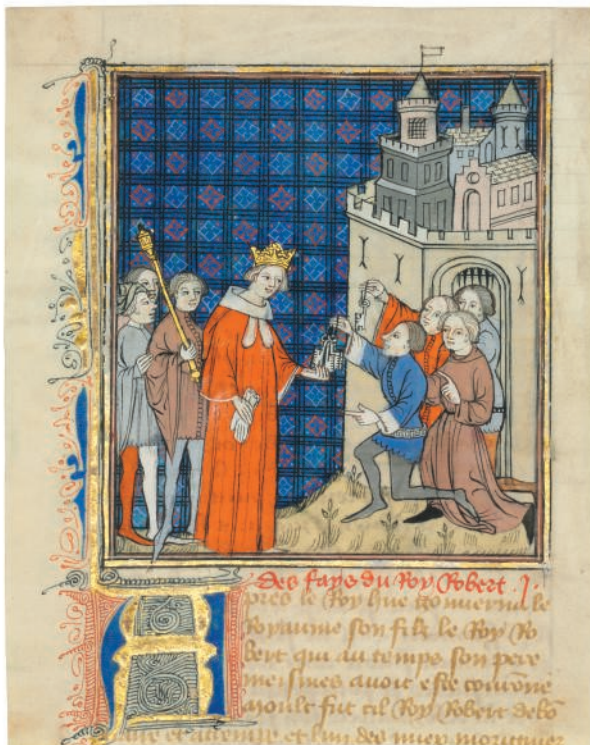 Des fays du Roy Robert .J.
Apres le Roy hue gouuerna le
Royaume son filz le Roy Ro
bert qui au temps son pere
meismes auoit este couronne
moult fut cil Roy Robert de bõ
et lun des miex